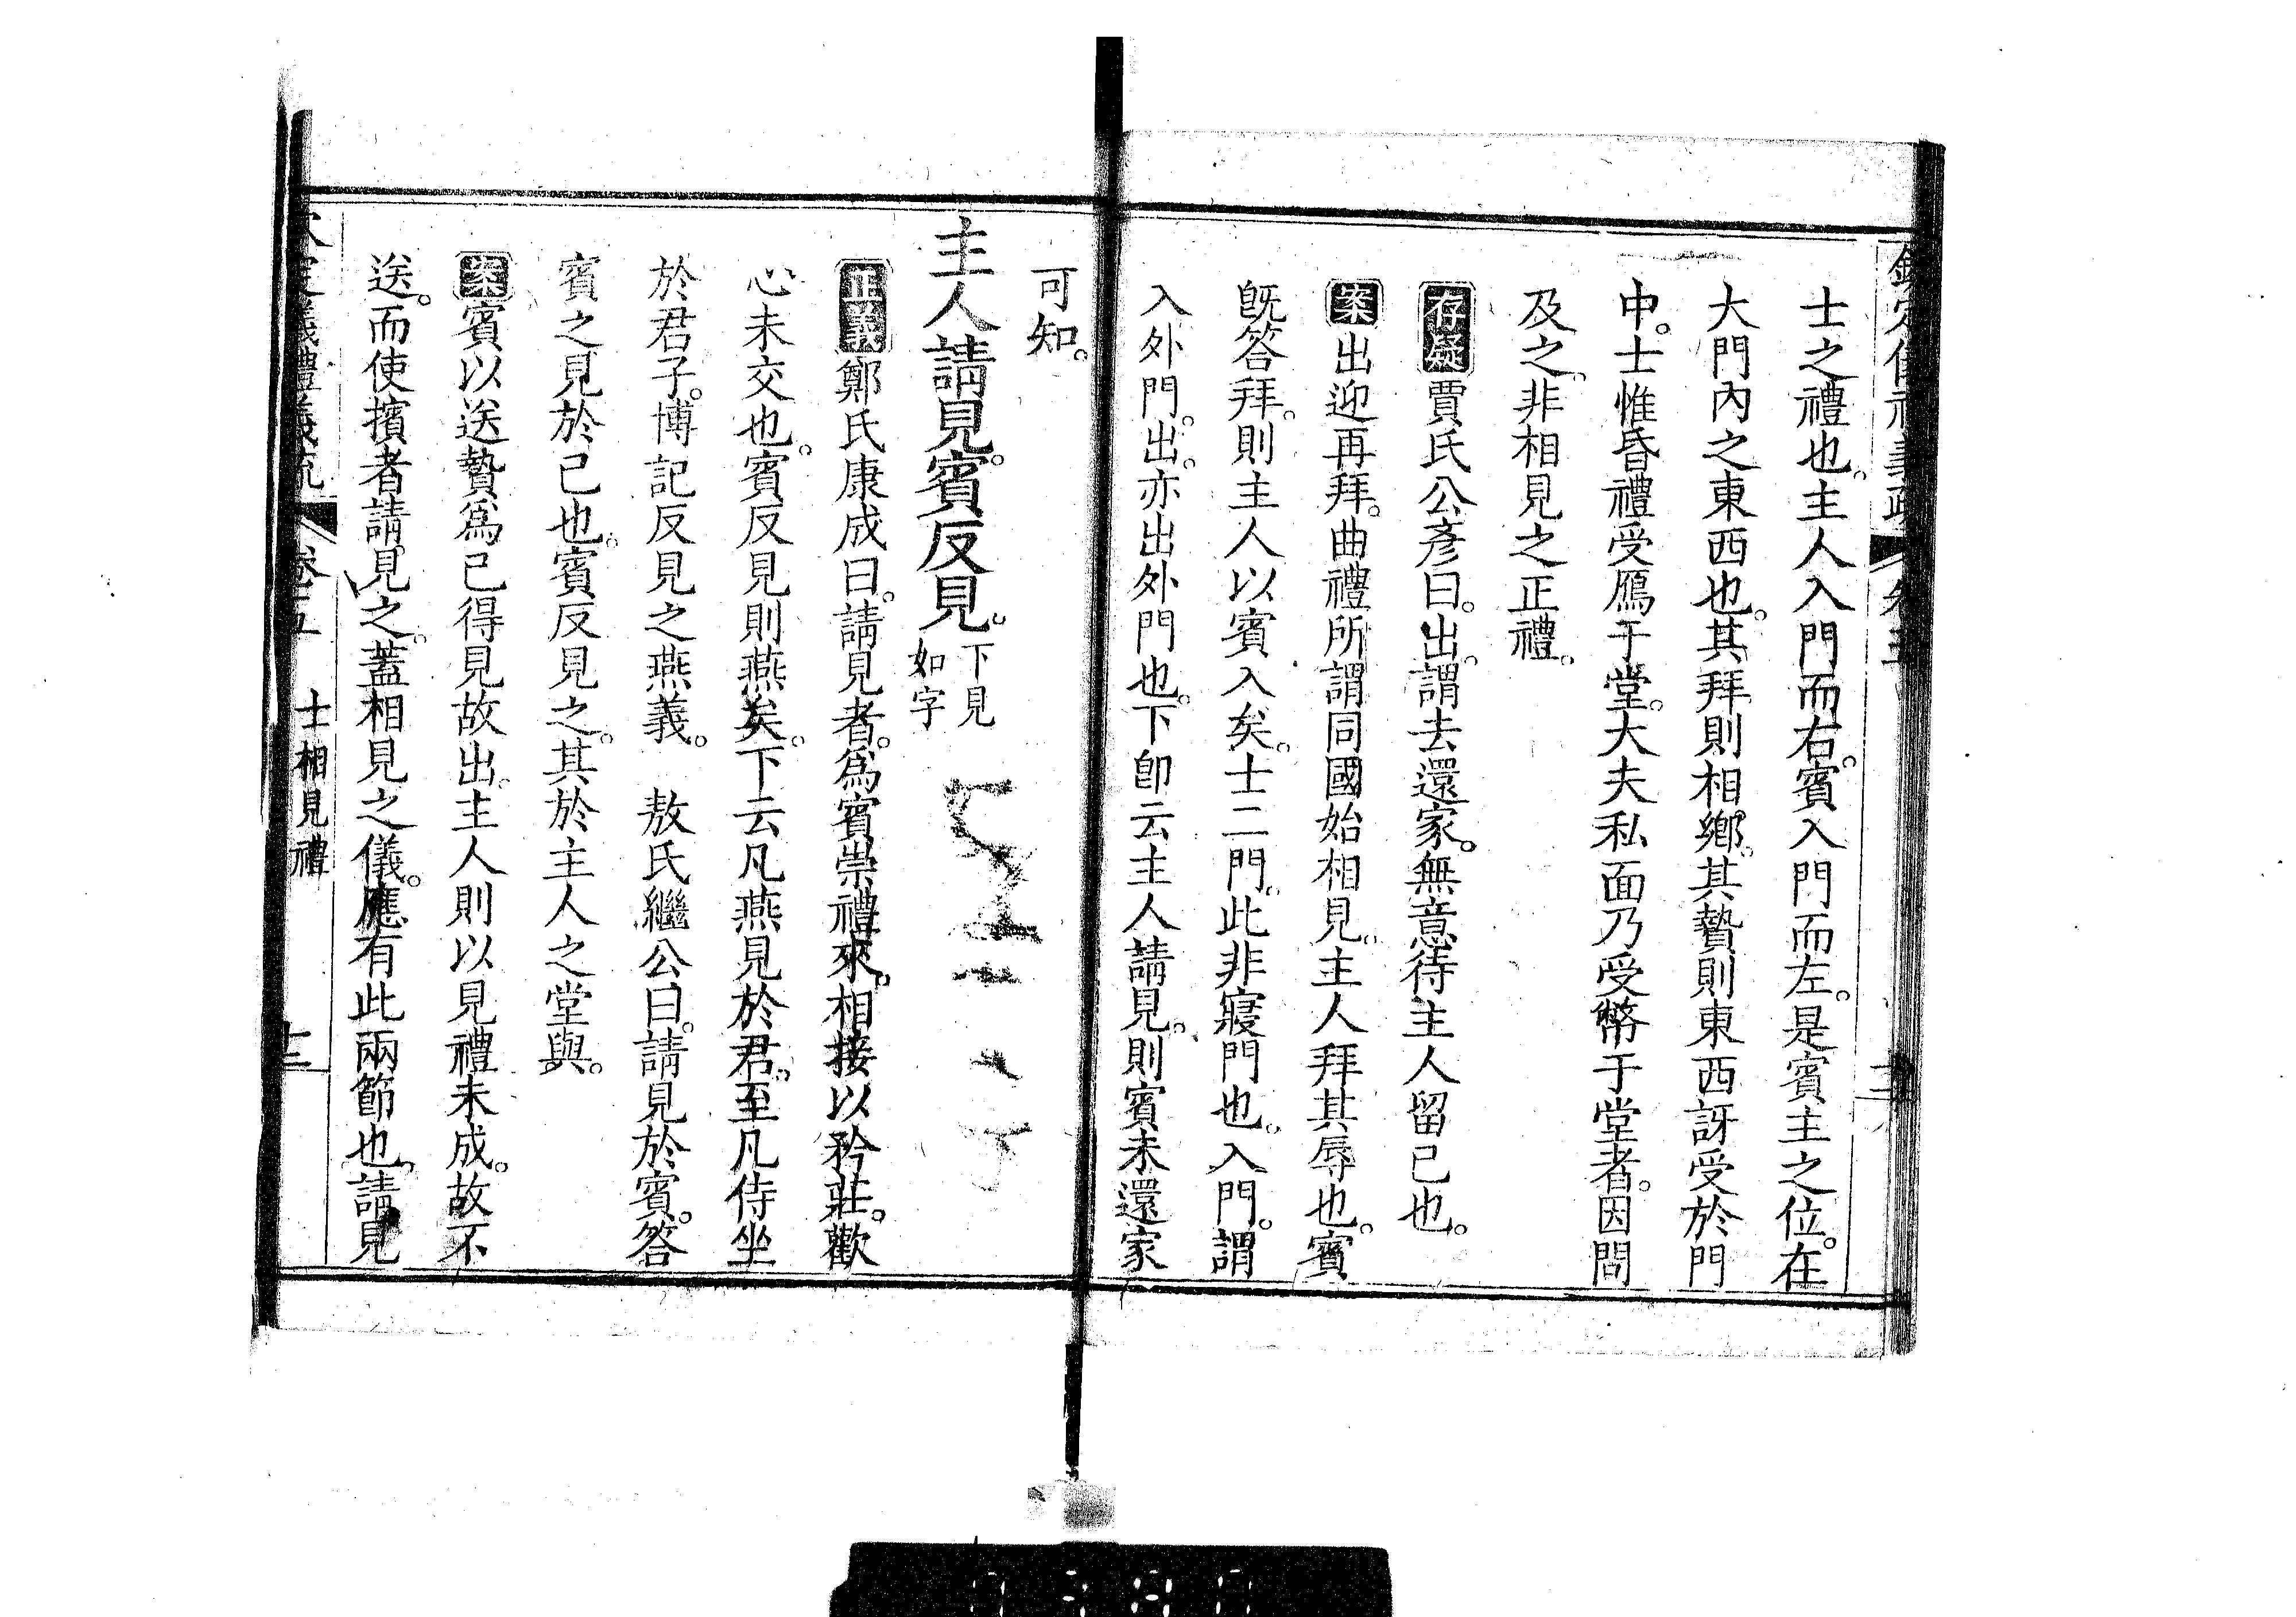 士之禮也。主人入門而右。賓入門而左。是賓主之位。在
大門內之東西也。其拜則相鄉。其贄則東西訝受於門
中。士惟昏禮受鴈于堂。大夫私面乃受幣于堂者。因問
及之。非相見之正禮。
存疑賈氏公彥曰。出。謂去還家。無意待主人留已也。
案出迎再拜。曲禮所謂同國始相見。主人拜其辱也。賓
旣答拜。則主人以賓入矣。士二門。此非寢門也。入門。謂
入外門。出。亦出外門也。下卽云主人請見。則賓未還家
可知。
主人請見。賓反見。下見
如字
正義鄭氏康成曰。請見者。爲賓崇禮來。相接以矜莊。歡
心未交也。賓反見則燕矣。下云凡燕見於君。至凡侍坐
於君子。博記反見之燕義。 敖氏繼公曰。請見於賓。答
賓之見於己也。賓反見之。其於主人之堂與。
案賓以送贄爲已得見故出。主人則以見禮未成。故不
送。而使擯者請見之。蓋相見之儀。應有此兩節也。請見
定儀禮義疏 卷五 士相見禮